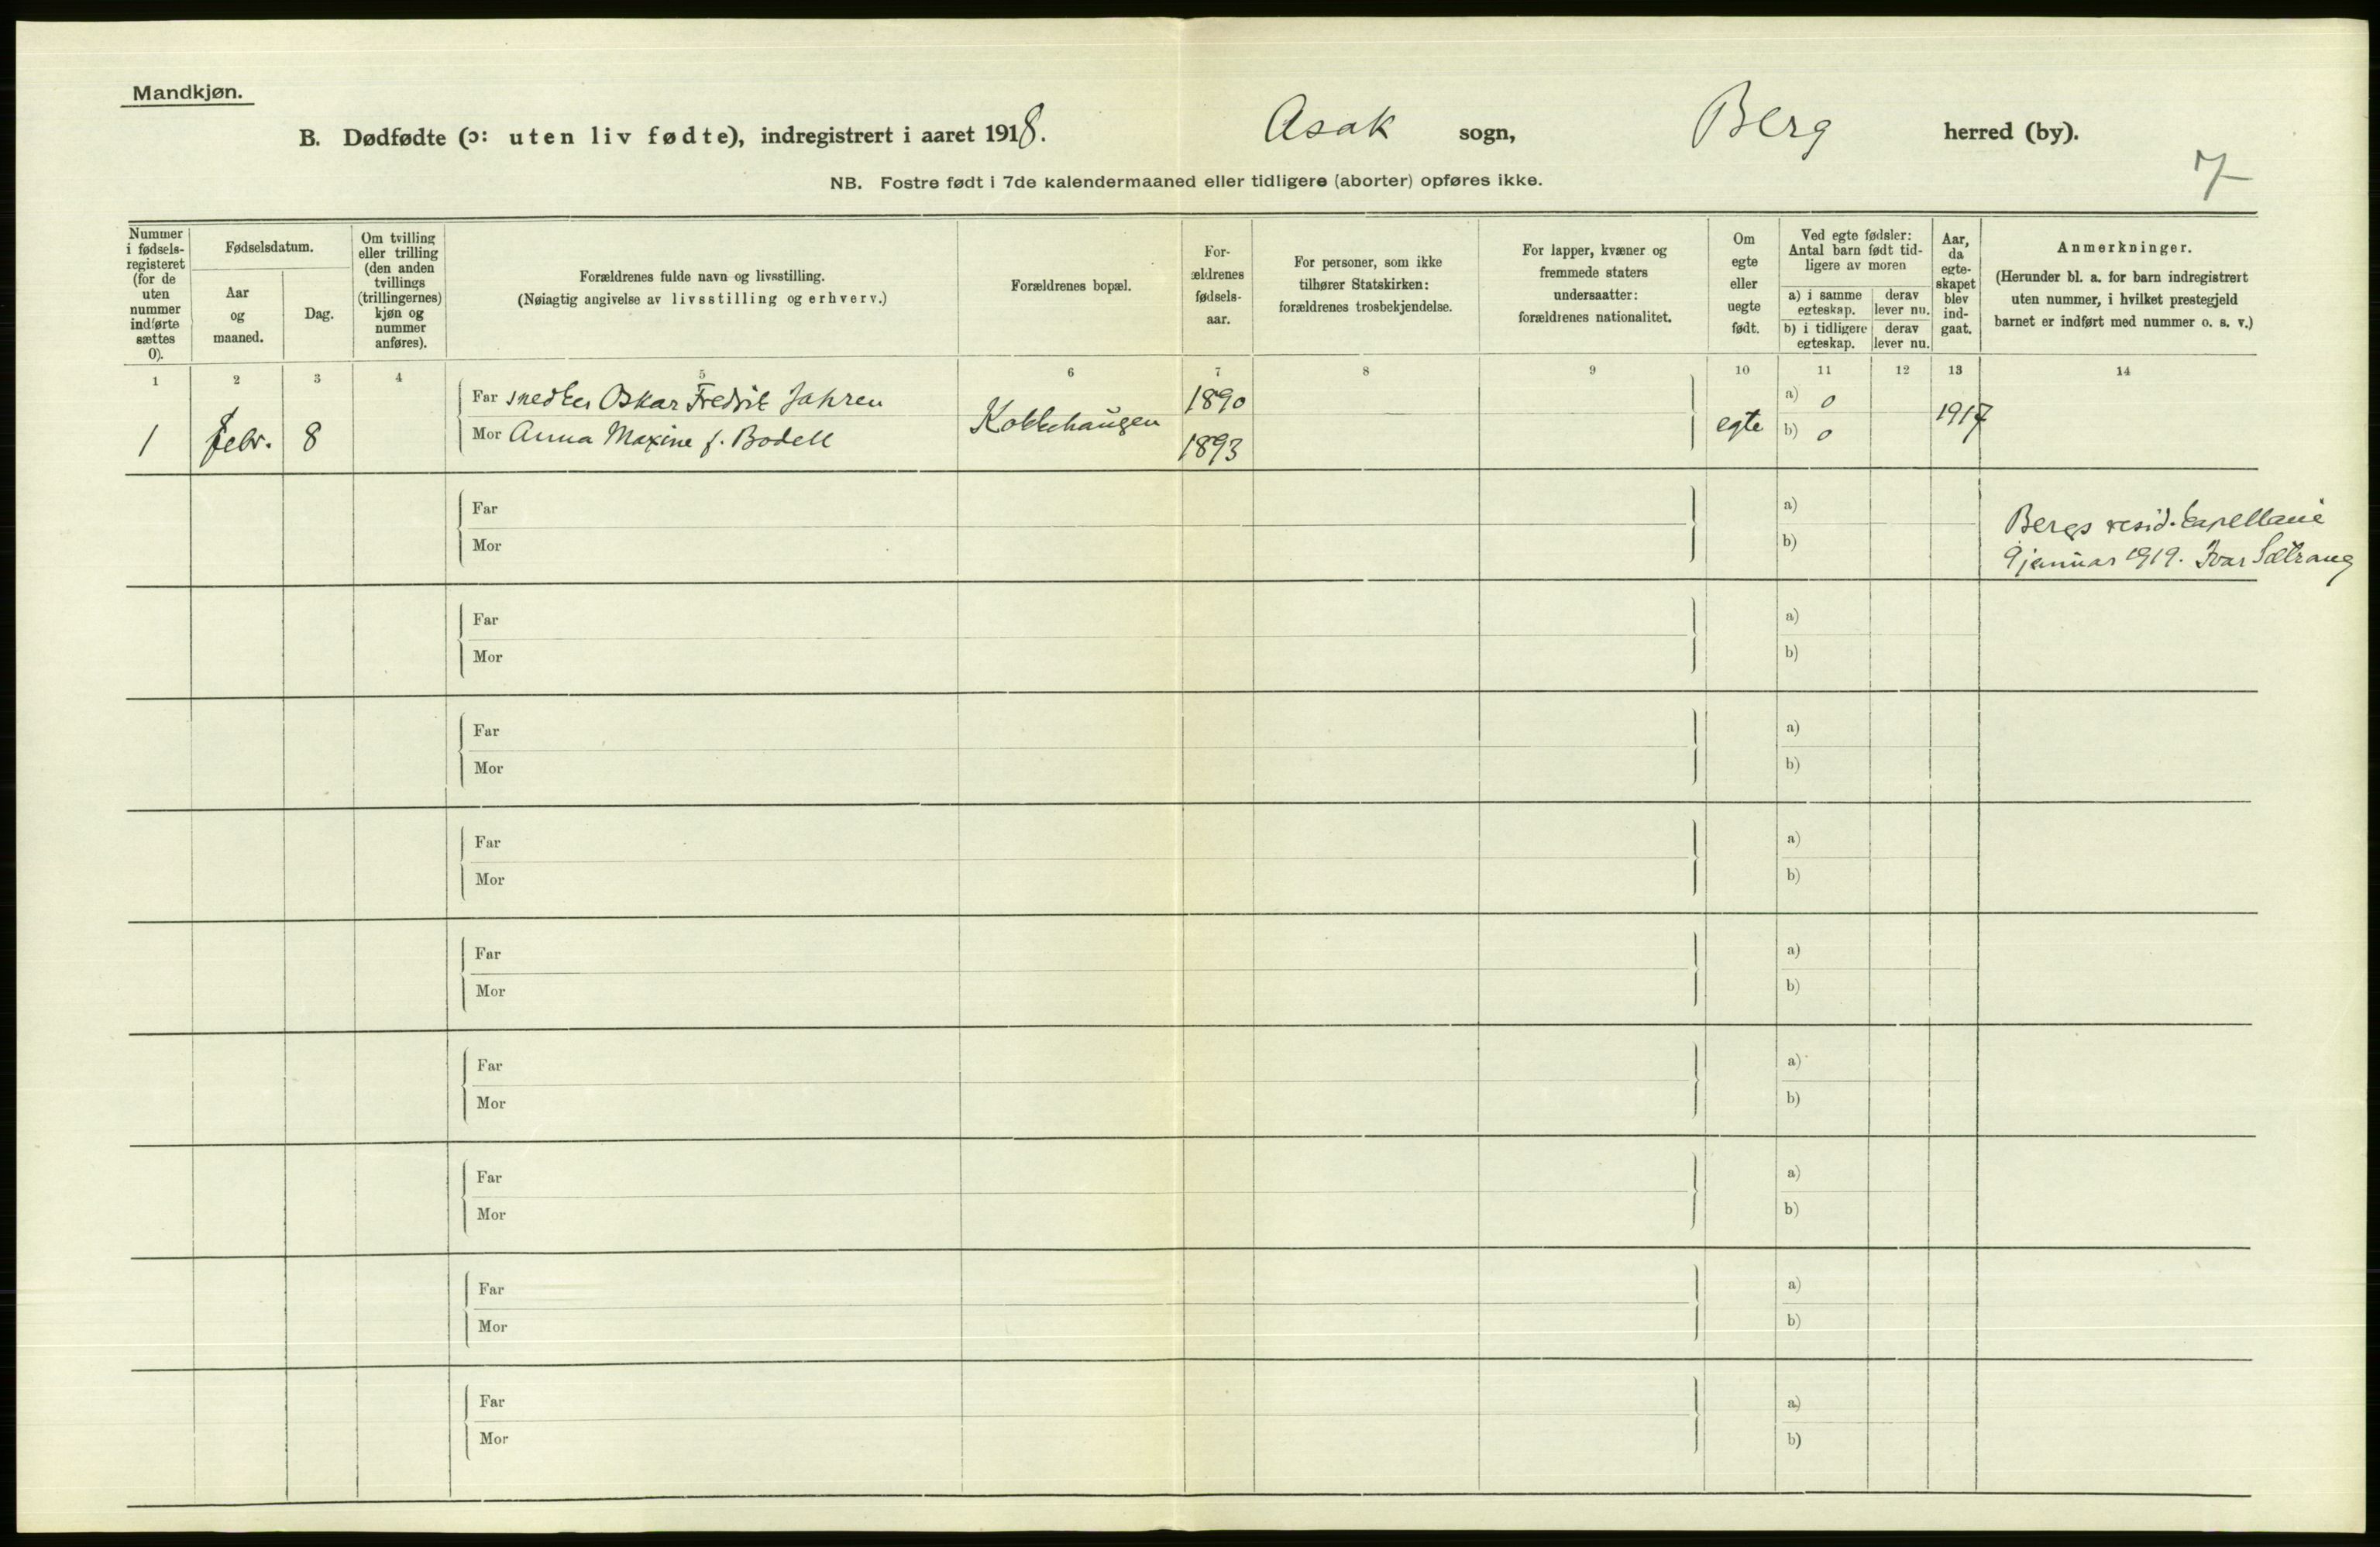 Mandkjøn.
B. Dødfødte (ɔ: uten liv fødte), indregistrert i aaret 1918. Asak sogn, Berg herred (by).
7
NB. Fostre født i 7de kalendermaaned eller tidligere (aborter) opføres ikke.
Nummer
i fødsels-
registeret
(for de
uten
nummer
indførte
sættes
0).
Fødselsdatum.
Aar
og
maaned.
Dag.
Om tvilling
eller trilling
(den anden
tvillings
(trillingernes)
kjøn og
nummer
anføres).
Forældrenes fulde navn og livsstilling.
(Nøiagtig angivelse av livsstilling og erhverv.)
Forældrenes bopæl.
For-
ældrenes
fødsels-
aar.
For personer, som ikke
tilhører Statskirken:
forældrenes trosbekjendelse.
For lapper, kvæner og
fremmede staters
undersaatter:
forældrenes nationalitet.
Om
egte
eller
uegte
født.
Ved egte fødsler:
Antal barn født tid-
ligere av moren
a) i samme
egteskap.
derav
lever nu.
b) i tidligere
egteskap.
derav
lever nu.
Aar,
da
egte-
skapet
blev
ind-
gaat.
Anmerkninger.
(Herunder bl. a. for barn indregistrert
uten nummer, i hvilket prestegjeld
barnet er indført med nummer o. s. v.)
1 2 3 4 5 6 7 8 9 10 11 12 13 14
Far snedker Oskar Fredrik Jahren 1890 a) 0
1 febr. 8 Kokkehaugen egte 1917
Mor Anna Maxine f. Bodell 1893 b) 0
Far a)
Mor b)
Bergs resid. kapellanie
9 januar 1919. Ivar Sætrang
Far a)
Mor b)
Far a)
Mor b)
Far a)
Mor b)
Far a)
Mor b)
Far a)
Mor b)
Far a)
Mor b)
Far a)
Mor b)
Far a)
Mor b)